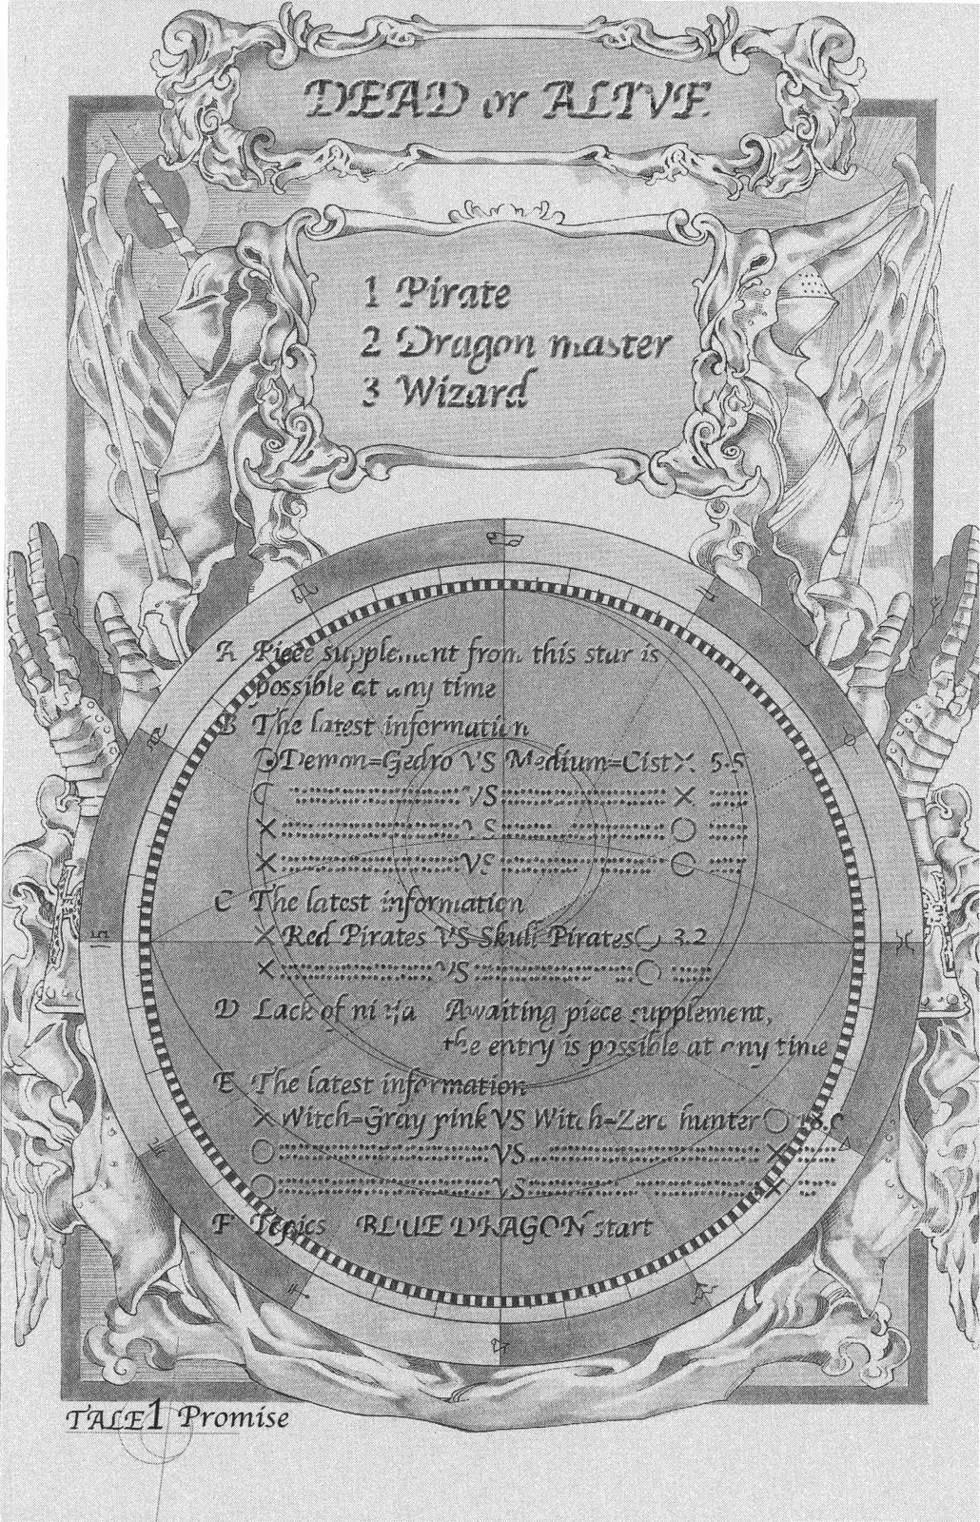 DEAD or ALIVE
1 Pirate
2 Dragon master
3 Wizard
A Piece supplement from this star is
possible at any time
B The latest information
Demon=Gedro VS Medium=Cist× 5.5
VS ×
× VS ○
× VS ○
C The latest information
× Red Pirates VS Skull Pirates○ 3.2
× VS ○
D Lack of ninja Awaiting piece supplement,
the entry is possible at any time
E The latest information
× Witch=Gray pink VS Witch=Zero hunter○
○ VS ×
○ VS ×
F Topics BLUE DRAGON start
TALE1 Promise